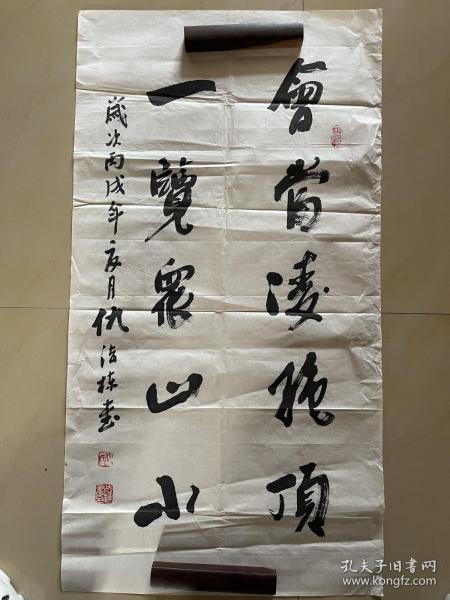 會當凌絶頂
一覽眾山小
歲次丙戌年夏月仇法栋書
孔夫子旧书网
www.kongfz.com